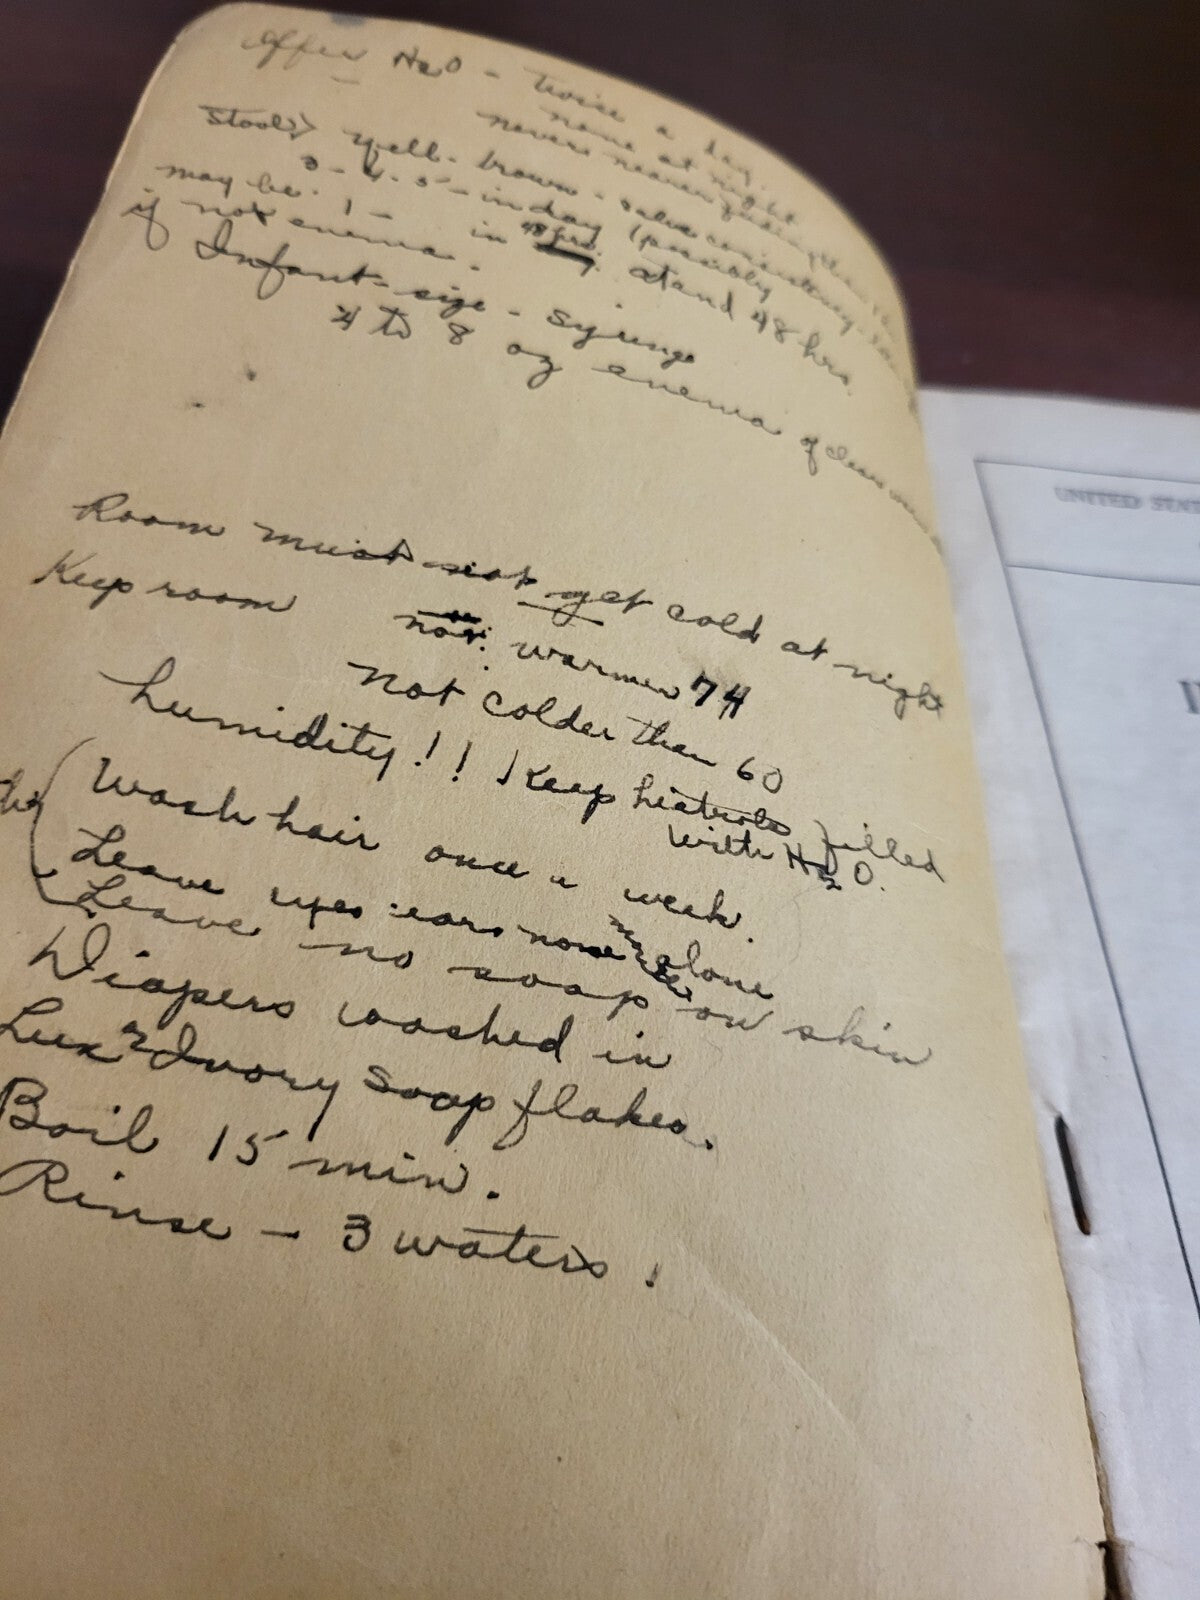 Offer H2O - twice a day.
none at night
never nearer
Stools) Yell- brown - salve consistency.
3 - 4 - 5 - in day (possibly
may be. 1 - in 48 hrs. at end 48 hrs.
if not enema.
Infant - size - syringe
4 to 8 oz enema of clear
Room must not get cold at night
Keep room not warmer 74
not colder than 60
humidity!! Keep filled
with H2O.
Wash hair once a week.
Leave eyes ears nose alone
Leave no soap on skin
Diapers washed in
Lux or Ivory Soap flakes.
Boil 15 min.
Rinse - 3 waters!
UNITED STA